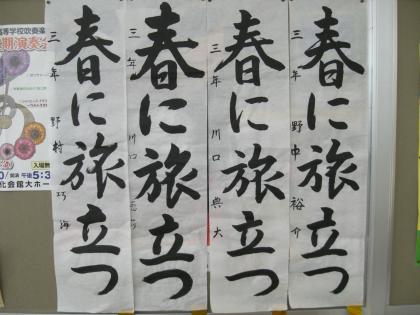 春に旅立つ
三年 野中裕介
春に旅立つ
三年 川口典大
春に旅立つ
三年 川口
春に旅立つ
三年 野村巧海
高等学校吹奏楽
期演奏会
入場無
開演 午後5:3
化会館大ホー